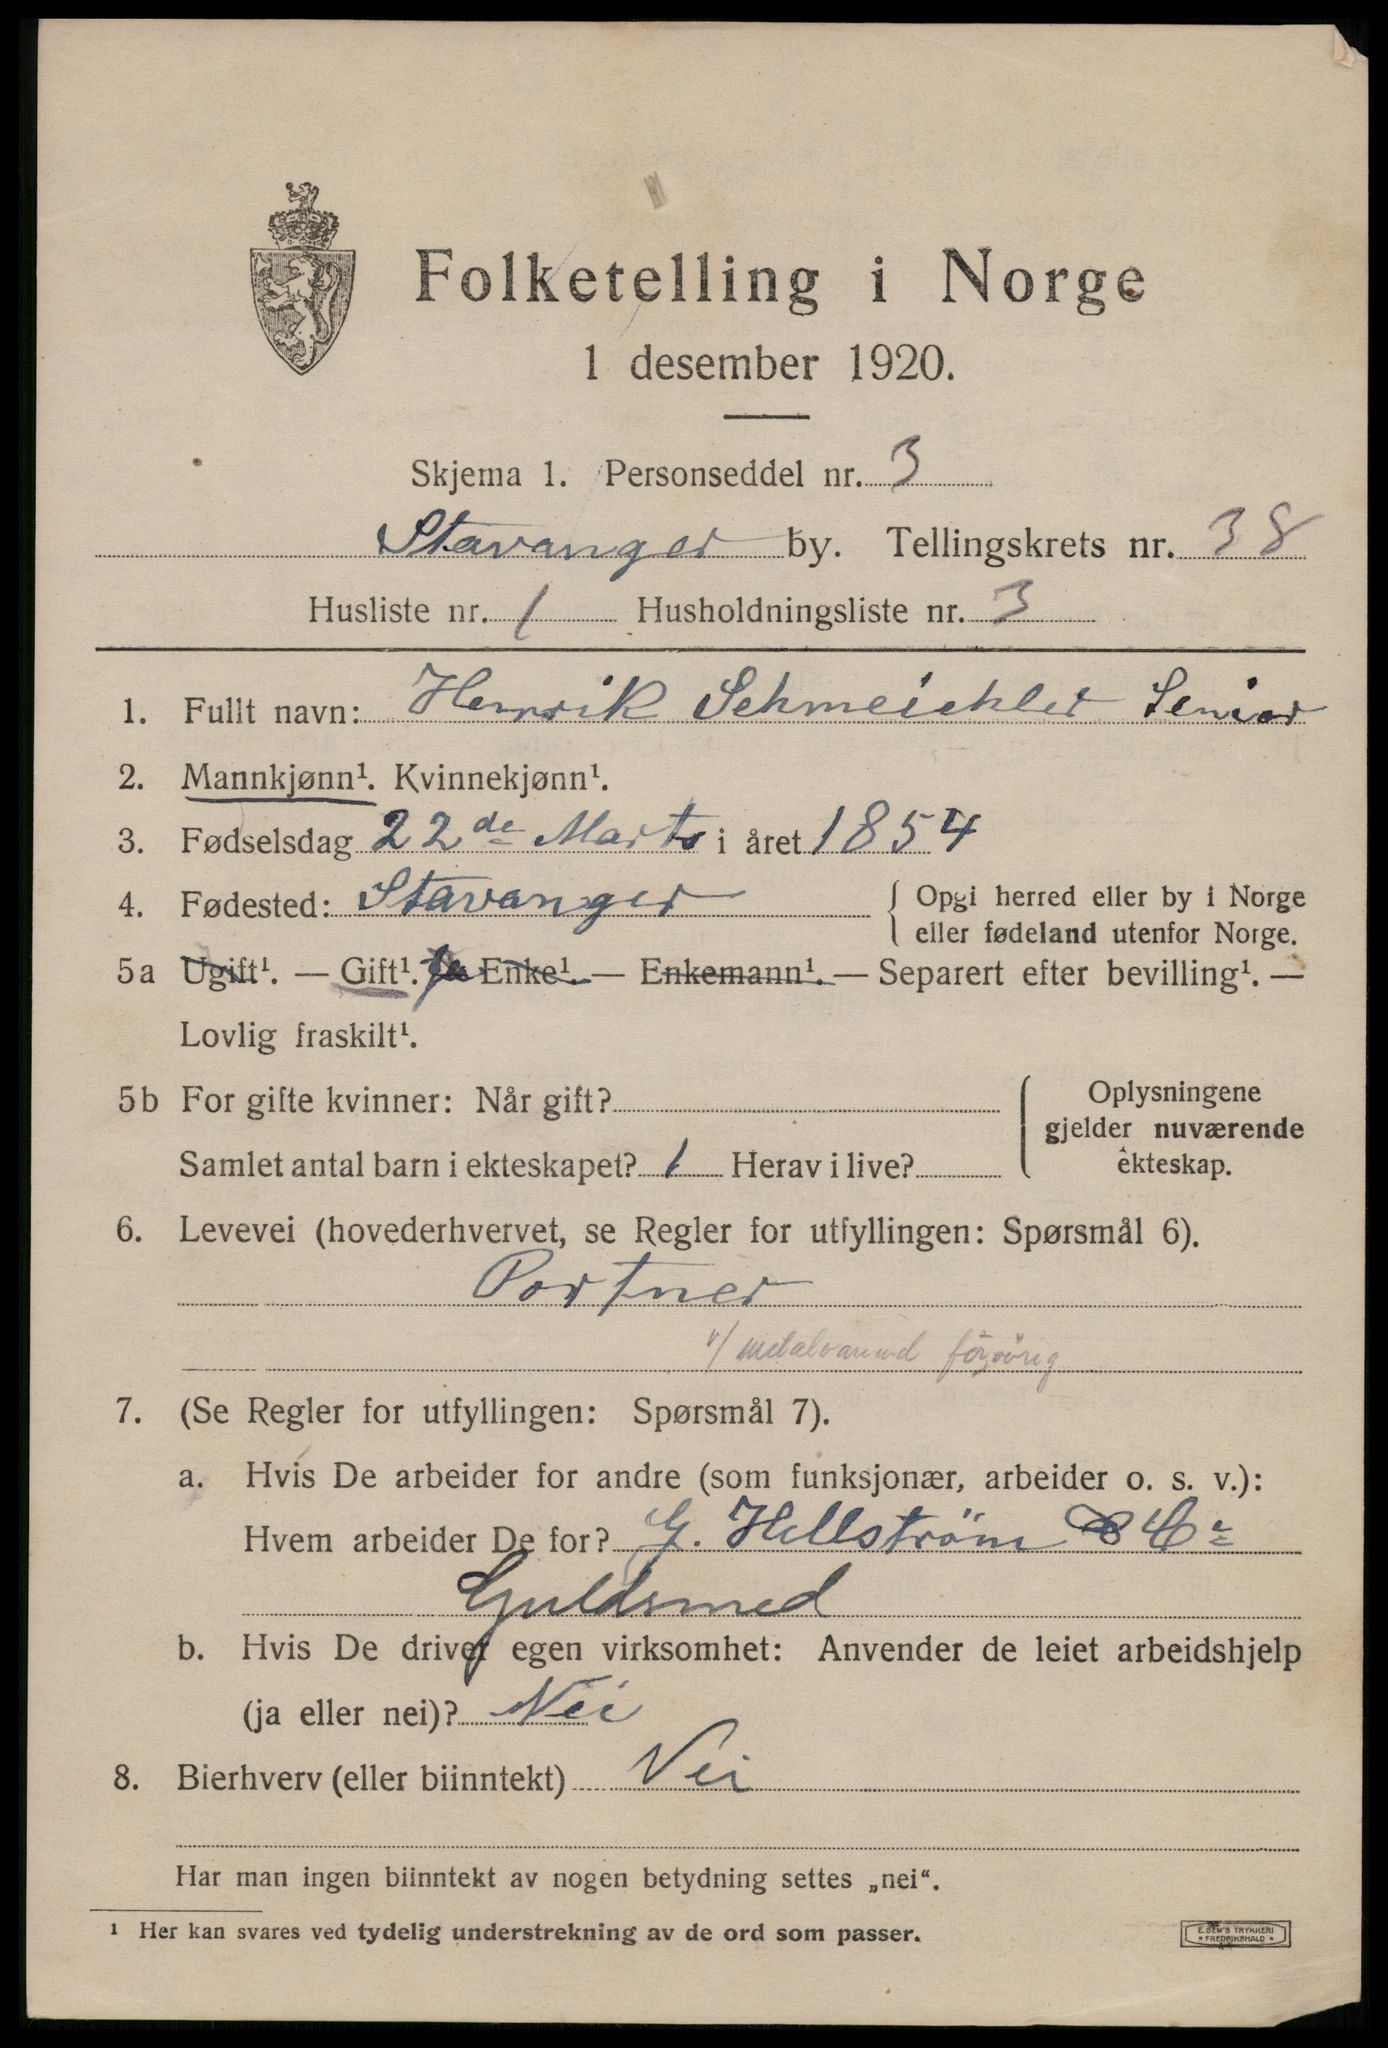 Folketelling i Norge
1 desember 1920.
Skjema 1. Personseddel nr. 3
Stavanger by. Tellingskrets nr. 38
Husliste nr. 1 Husholdningsliste nr. 3
1. Fullt navn: Henrik Schmeichler Senior
2. Mannkjønn¹. Kvinnekjønn¹.
3. Fødselsdag 22de Marts i året 1854
4. Fødested: Stavanger { Opgi herred eller by i Norge
eller fødeland utenfor Norge.
5a Ugift¹. — Gift¹. Ja Enke¹. — Enkemann¹. — Separert efter bevilling¹. —
Lovlig fraskilt¹.
5b For gifte kvinner: Når gift?
Samlet antal barn i ekteskapet? 1 Herav i live?
Oplysningene
gjelder nuværende
ekteskap.
6. Levevei (hovederhvervet, se Regler for utfyllingen: Spørsmål 6).
Portner
v/
7. (Se Regler for utfyllingen: Spørsmål 7).
a. Hvis De arbeider for andre (som funksjonær, arbeider o. s. v.):
Hvem arbeider De for? G. Hellstrøm & Co
Guldsmed
b. Hvis De driver egen virksomhet: Anvender de leiet arbeidshjelp
(ja eller nei)? Nei
8. Bierhverv (eller biinntekt) Nei
Har man ingen biinntekt av nogen betydning settes „nei“.
¹ Her kan svares ved tydelig understrekning av de ord som passer.
E. SEM'S TRYKKERI
* FREDRIKSHALD *